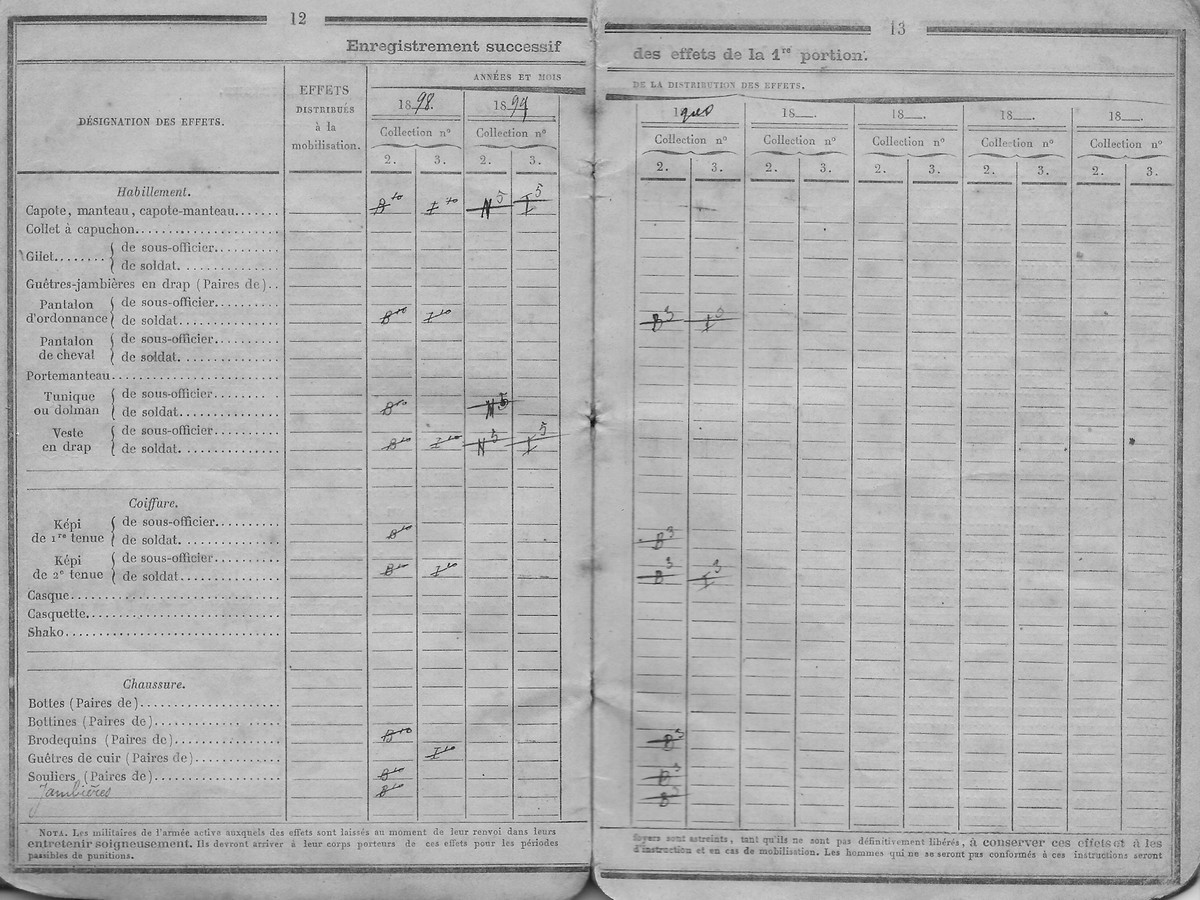 12
Enregistrement successif
DÉSIGNATION DES EFFETS.
EFFETS
DISTRIBUÉS
à la
mobilisation.
ANNÉES ET MOIS
1898. 1899
Collection n° Collection n°
2. 3. 2. 3.
Habillement.
Capote, manteau, capote-manteau....... B 10 I 10 N 5 I 5
Collet à capuchon.
Gilet........ { de sous-officier.
de soldat.
Guêtres-jambières en drap (Paires de)..
Pantalon d'ordonnance { de sous-officier.
de soldat. B 10 I 10 B 3 I 3
Pantalon de cheval { de sous-officier.
de soldat.
Portemanteau.
Tunique ou dolman { de sous-officier.
de soldat. B 10 N 5
Veste en drap { de sous-officier.
de soldat. B 10 I 10 N 5 I 5
Coiffure.
Képi de 1re tenue { de sous-officier.
de soldat. B 10 B 3
Képi de 2e tenue { de sous-officier.
de soldat. B 10 I 10 B 3 I 3
Casque.
Casquette.
Shako.
Chaussure.
Bottes (Paires de).
Bottines (Paires de).
Brodequins (Paires de). B 10 B 3
Guêtres de cuir (Paires de). I 10
Souliers (Paires de). B 10 B 3
Jambières B 10 B 3
NOTA. Les militaires de l'armée active auxquels des effets sont laissés au moment de leur renvoi dans leurs
entretenir soigneusement. Ils devront arriver à leur corps porteurs de ces effets pour les périodes
passibles de punitions.
13
des effets de la 1re portion.
DE LA DISTRIBUTION DES EFFETS.
1900 18__. 18__. 18__. 18__.
Collection n° Collection n° Collection n° Collection n° Collection n°
2. 3. 2. 3. 2. 3. 2. 3. 2. 3.
foyers sont astreints, tant qu'ils ne sont pas définitivement libérés, à conserver ces effets et à les
d'instruction et en cas de mobilisation. Les hommes qui ne se seront pas conformés à ces instructions seront